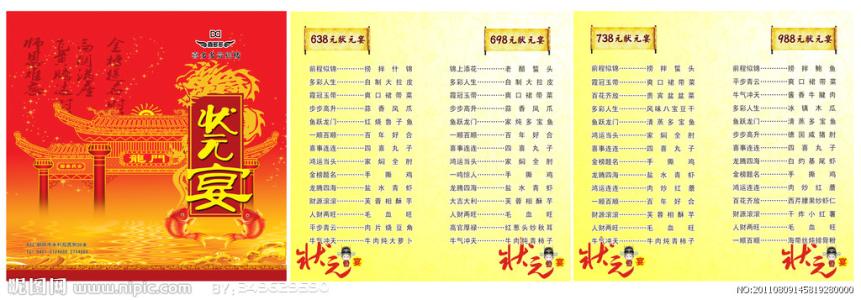 状元宴
龍門
638元状元宴
前程似锦············捞拌什锦
多彩人生············自制大拉皮
霞冠玉带············爽口裙带菜
步步高升············蒜香凤爪
鱼跃龙门············红烧鲁子鱼
一顺百顺············百年好合
喜事连连············四喜丸子
鸿运当头············家焖全肘
金榜题名············手撕鸡
龙腾四海············盐水青虾
财源滚滚············芙蓉相酥芋
人财两旺············毛血旺
平步青云············肉片烧豆角
牛气冲天············牛肉炖大萝卜
698元状元宴
锦上添花············老醋蜇头
多彩人生············自制大拉皮
霞冠玉带············爽口裙带菜
步步高升············蒜香凤爪
鱼跃龙门············家炖多宝鱼
一顺百顺············百年好合
喜事连连············四喜丸子
鸿运当头············家焖全肘
一鸣惊人············手撕鸡
龙腾四海············盐水青虾
大吉大利············芙蓉相酥芋
人财两旺············毛血旺
高官厚禄············红葱头炒秋耳
牛气冲天············牛肉炖青柿子
状元宴
738元状元宴
前程似锦············捞拌蜇头
霞冠玉带············爽口裙带菜
百花齐放············贵宾盆盆菜
多彩人生············风味八宝豆干
鱼跃龙门············清蒸多宝鱼
鸿运当头············家焖全肘
喜事连连············四喜丸子
金榜题名············手撕鸡
龙腾四海············盐水青虾
鸿运连连············肉炒红蘑
一顺百顺············百年好合
财源滚滚············芙蓉相酥芋
人财两旺············毛血旺
牛气冲天············牛肉炖青柿子
988元状元宴
前程似锦············捞拌鲍鱼
平步青云············爽口裙带菜
牛气冲天············酱香牛腱肉
多彩人生············冰镇木瓜
鱼跃龙门············清蒸多宝鱼
步步高升············德国咸猪肘
龙腾四海············白灼基尾虾
金榜题名············手撕鸡
鸿运连连············肉炒红蘑
百花齐放············西芹腰果炒虾仁
财源滚滚············干炸小红薯
人财两旺············毛血旺
一顺百顺············海带丝炖排骨粉
状元宴
昵图网 www.nipic.com
NO:20110809145819280000